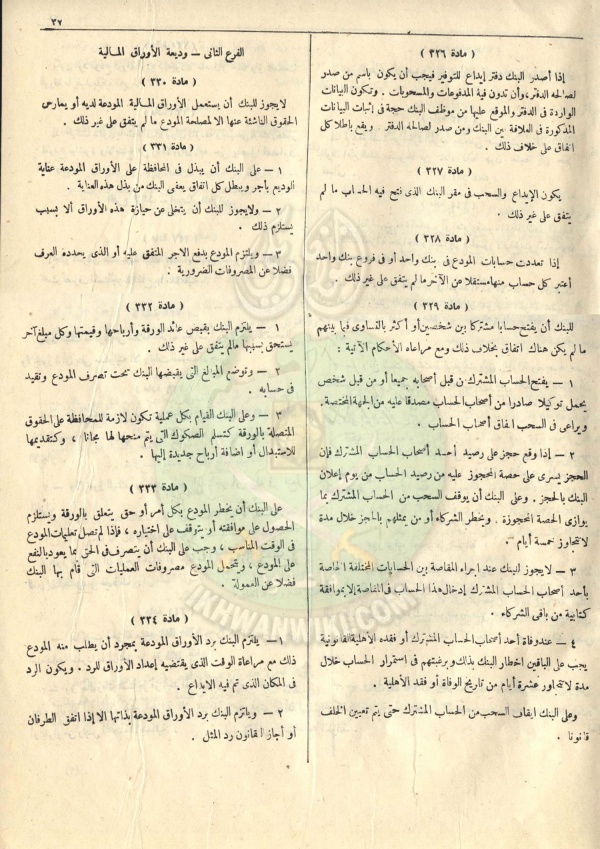 ٣٧
( مادة ٣٢٦ )
إذا أصدر البنك دفتر إيداع للتوفير فيجب أن يكون باسم من صدر
لصالحه الدفتر ، وأن تدون فيه المدفوعات والمسحوبات . وتكون البيانات
الواردة فى الدفتر والموقع عليها من موظف البنك حجة فى إثبات البيانات
المذكورة فى العلاقة بين البنك ومن صدر لصالحه الدفتر . ويقع باطلا كل
اتفاق على خلاف ذلك .
( مادة ٣٢٧ )
يكون الإيداع والسحب فى مقر البنك الذى فتح فيه الحساب ما لم
يتفق على غير ذلك .
( مادة ٣٢٨ )
إذا تعددت حسابات المودع فى بنك واحد أو فى فروع بنك واحد
أعتبر كل حساب منها مستقلا عن الآخر ما لم يتفق على غير ذلك .
( مادة ٣٢٩ )
للبنك أن يفتح حسابا مشتركا بين شخصين أو أكثر بالتساوى فيما بينهم
ما لم يكن هناك اتفاق بخلاف ذلك ومع مراعاه الأحكام الآتية :
١ – يفتح الحساب المشترك من قبل أصحابه جميعا أو من قبل شخص
يحمل توكيلا صادرا من أصحاب الحساب مصدقا عليه من الجهة المختصة .
ويراعى فى السحب اتفاق أصحاب الحساب .
٢ – إذا وقع حجز على رصيد أحد أصحاب الحساب المشترك فإن
الحجز يسرى على حصة المحجوز عليه من رصيد الحساب من يوم إعلان
البنك بالحجز . وعلى البنك أن يوقف السحب من الحساب المشترك بما
يوازى الحصة المحجوزة . ويخطر الشركاء أو من يمثلهم بالحجز خلال مدة
لا تتجاوز خمسة أيام .
٣ – لا يجوز للبنك عند إجراء المقاصة بين الحسابات المختلفة الخاصة
بأحد أصحاب الحساب المشترك إدخال هذا الحساب فى المقاصة إلا بموافقة
كتابية من باقى الشركاء .
٤ – عند وفاة أحد أصحاب الحساب المشترك أو فقده الأهلية القانونية
يجب على الباقين اخطار البنك بذلك وبرغبتهم فى استمرار الحساب خلال
مدة لا تتجاوز عشرة أيام من تاريخ الوفاة أو فقد الأهلية .
وعلى البنك ايقاف السحب من الحساب المشترك حتى يتم تعيين الخلف
قانونا .
الفرع الثانى – وديعة الأوراق المالية
( مادة ٣٣٠ )
لا يجوز للبنك أن يستعمل الأوراق المالية المودعة لديه أو يمارس
الحقوق الناشئة عنها الا لمصلحة المودع ما لم يتفق على غير ذلك .
( مادة ٣٣١ )
١ – على البنك أن يبذل فى المحافظة على الأوراق المودعة عناية
الوديع بأجر ويبطل كل اتفاق يعفى البنك من بذل هذه العناية .
٢ – ولا يجوز للبنك أن يتخلى عن حيازة هذه الأوراق ألا بسبب
يستلزم ذلك .
٣ – ويلتزم المودع بدفع الاجر المتفق عليه أو الذى يحدده العرف
فضلا عن المصروفات الضرورية .
( مادة ٣٣٢ )
١ – يلتزم البنك بقبض عائد الورقة وأرباحها وقيمتها وكل مبلغ آخر
يستحق بسببها مالم يتفق على غير ذلك .
٢ – وتوضع المبالغ التى يقبضها البنك تحت تصرف المودع وتقيد
فى حسابه .
٣ – وعلى البنك القيام بكل عملية تكون لازمة للمحافظة على الحقوق
المتصلة بالورقة كتسلم الصكوك التى يتم منحها لها مجانا ، وكتقديمها
للاستبدال أو اضافة أرباح جديدة إليها .
( مادة ٣٣٣ )
على البنك أن يخطر المودع بكل أمر أو حق يتعلق بالورقة ويستلزم
الحصول على موافقته أو يتوقف على اختياره ، فإذا لم تصل تعليمات المودع
فى الوقت المناسب ، وجب على البنك أن يتصرف فى الحق بما يعود بالنفع
على المودع ، ويتحمل المودع مصروفات العمليات التى قام بها البنك
فضلا عن العمولة .
( مادة ٣٣٤ )
١ – يلتزم البنك برد الأوراق المودعة بمجرد أن يطلب منه المودع
ذلك مع مراعاة الوقت الذى يقتضيه إعداد الأوراق للرد . ويكون الرد
فى المكان الذى تم فيه الإيداع .
٢ – ويلتزم البنك برد الأوراق المودعة بذاتها الا إذا اتفق الطرفان
أو أجاز القانون رد المثل .
IKHWANWIKI.COM